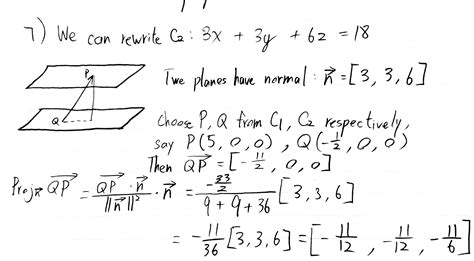 7) We can rewrite C₂ : 3x + 3y + 6z = 18
P
Q
Two planes have normal : n⃗ = [3, 3, 6]
choose P, Q from C₁, C₂ respectively,
say P(5, 0, 0), Q(-1/2, 0, 0)
Then QP⃗ = [-11/2, 0, 0]
Proj n⃗ QP⃗ = QP⃗ · n⃗ / ||n⃗||² · n⃗ = -33/2 / 9 + 9 + 36 [3, 3, 6]
= -11/36 [3, 3, 6] = [-11/12, -11/12, -11/6]